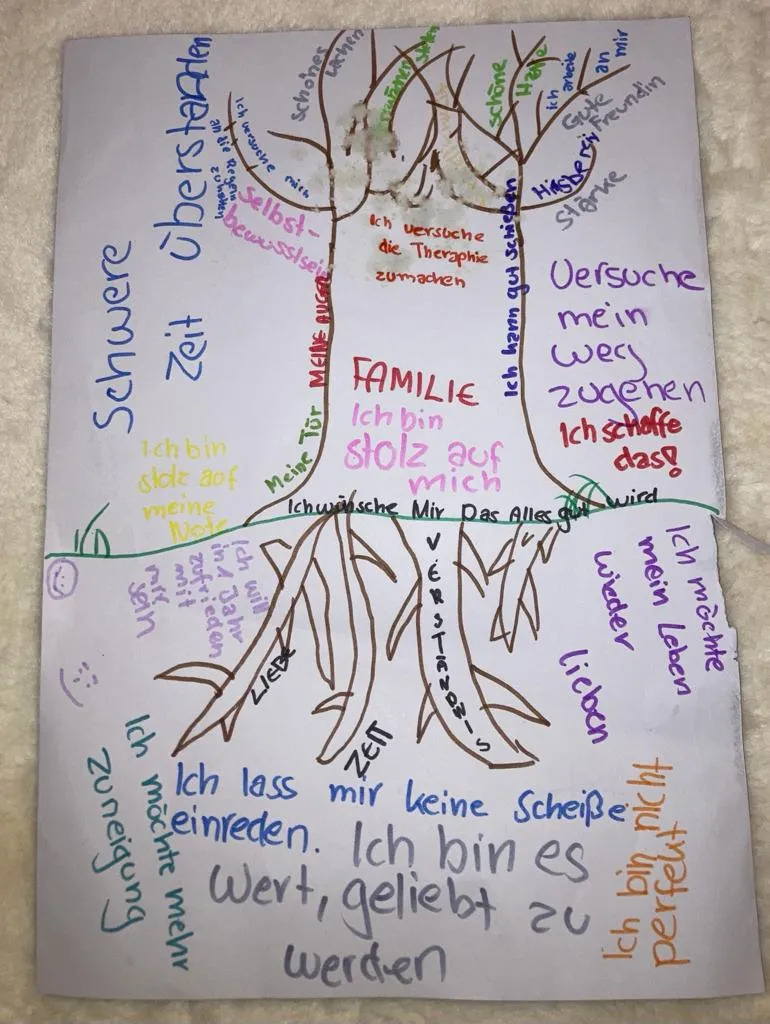 Schwere
Zeit überstanden
Ich versuche mich
an die Regeln
zuhalten
Selbst-
bewusstsein
Schönes
Lachen
schöne
Haare
Ich arbeite
an mir
Gute
Freundin
Hilfsbereit
Stärke
Ich versuche
die Theraphie
zumachen
MEINE AUGEN
Meine Tür
Ich kann gut schießen
Versuche
mein
weg
zugehen
Ich schaffe
das!
FAMILIE
Ich bin
stolz auf
mich
Ich bin
stolz auf
meine
Note
Ich wünsche Mir Das Alles gut wird
Ich will
in 1 Jahr
zufrieden
mit
mir
sein
LIEBE
ZEIT
VERSTÄNDNIS
Ich möchte
mein Leben
wieder
lieben
Ich möchte mehr
zuneigung
Ich lass mir keine Scheiße
einreden.
Ich bin es
wert, geliebt zu
werden
Ich bin nicht
perfekt